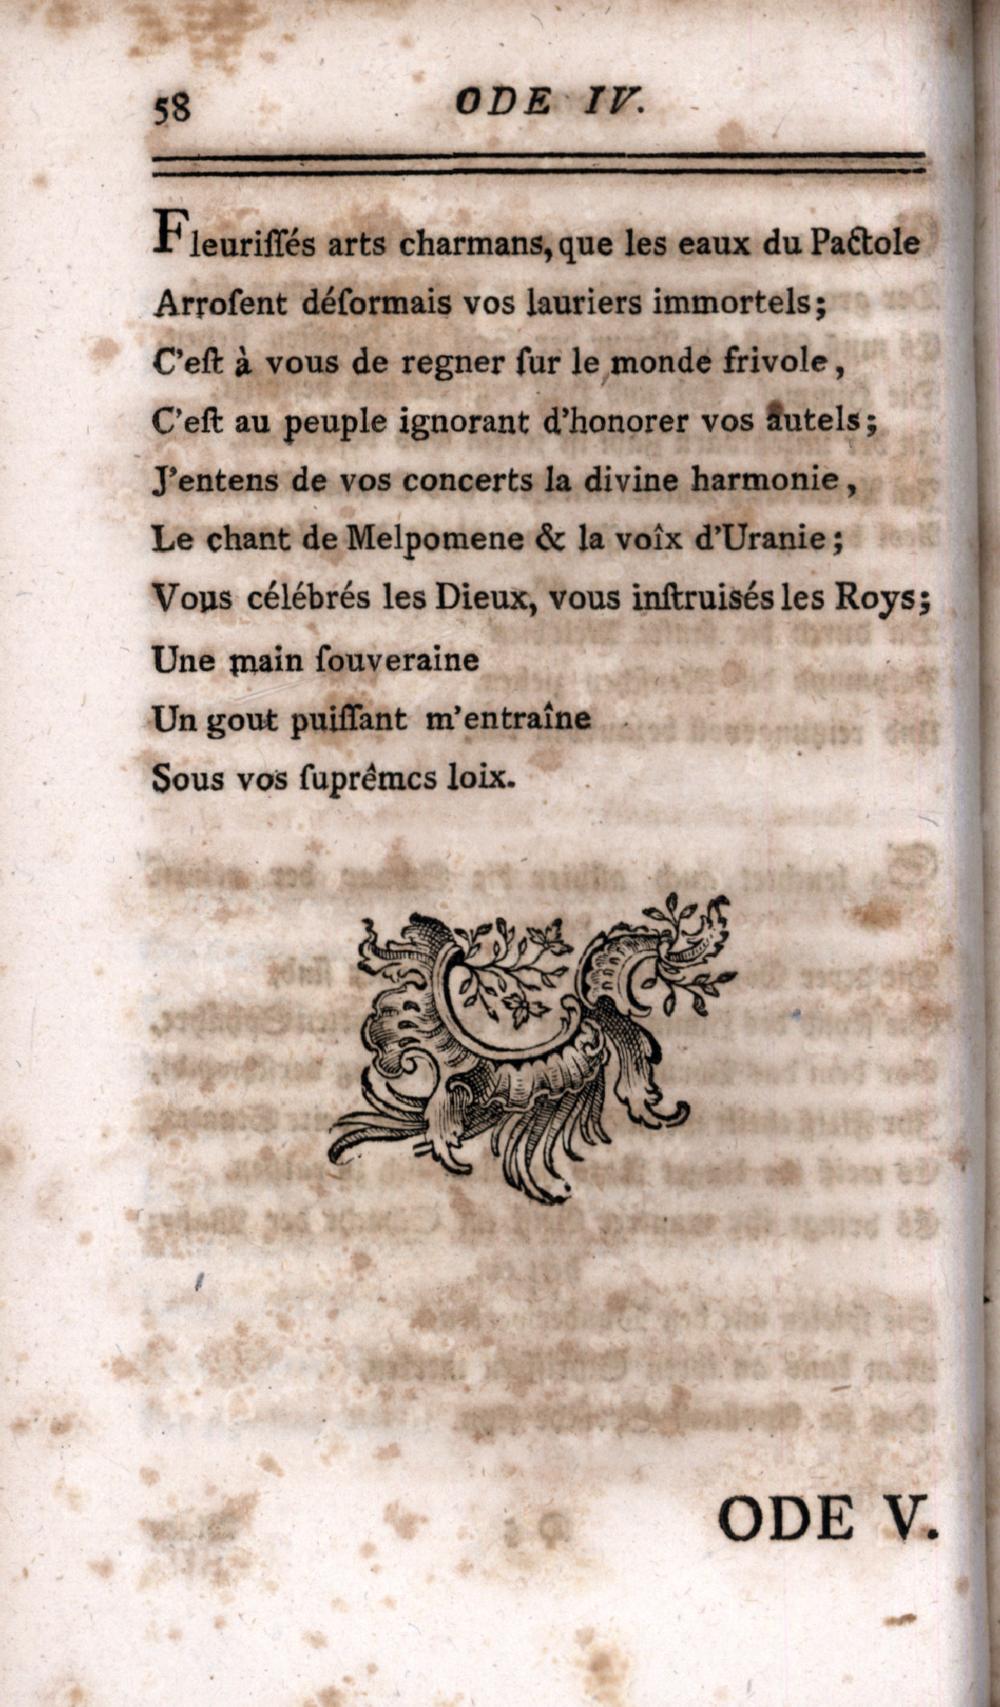 58 ODE IV.
Fleuriſſés arts charmans, que les eaux du Pactole
Arroſent déſormais vos lauriers immortels;
C'eſt à vous de regner ſur le monde frivole,
C'eſt au peuple ignorant d'honorer vos autels;
J'entens de vos concerts la divine harmonie,
Le chant de Melpomene & la voîx d'Uranie;
Vous célébrés les Dieux, vous inſtruisés les Roys;
Une main ſouveraine
Un gout puiſſant m'entraîne
Sous vos ſuprêmcs loix.
ODE V.